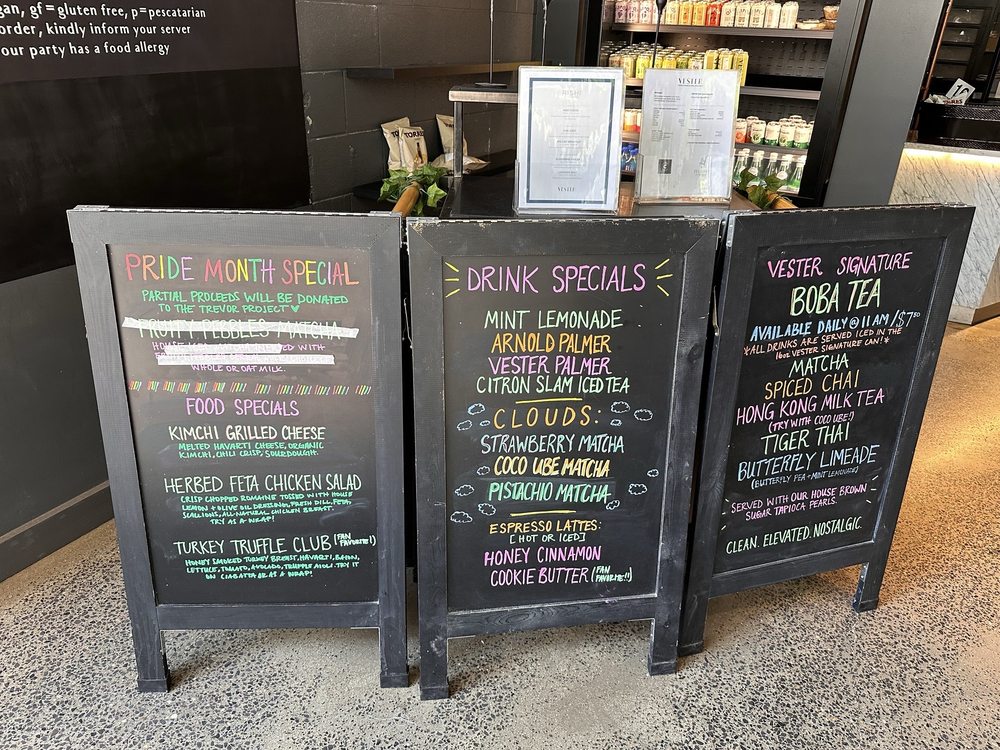 gan, gf = gluten free, p = pescatarian
order, kindly inform your server
our party has a food allergy
VESTER
VESTER
PRIDE MONTH SPECIAL
PARTIAL PROCEEDS WILL BE DONATED
TO THE TREVOR PROJECT
FRUITY PEBBLES MATCHA
WHOLE OR OAT MILK.
FOOD SPECIALS
KIMCHI GRILLED CHEESE
MELTED HAVARTI CHEESE, ORGANIC
KIMCHI, CHILI CRISP, SOURDOUGH.
HERBED FETA CHICKEN SALAD
CRISP CHOPPED ROMAINE TOSSED WITH HOUSE
LEMON + OLIVE OIL DRESSING, FRESH DILL, FETA,
SCALLIONS, ALL-NATURAL CHICKEN BREAST.
TRY AS A WRAP!
TURKEY TRUFFLE CLUB (FAN FAVORITE!)
HONEY SMOKED TURKEY BREAST, HAVARTI, BACON,
LETTUCE, TOMATO, AVOCADO, TRUFFLE AIOLI. TRY IT
ON CIABATTA OR AS A WRAP!
DRINK SPECIALS
MINT LEMONADE
ARNOLD PALMER
VESTER PALMER
CITRON SLAM ICED TEA
CLOUDS:
STRAWBERRY MATCHA
COCO UBE MATCHA
PISTACHIO MATCHA
ESPRESSO LATTES:
[HOT OR ICED]
HONEY CINNAMON
COOKIE BUTTER (FAN FAVORITE!!)
VESTER SIGNATURE
BOBA TEA
AVAILABLE DAILY @ 11 AM / $7.50
*ALL DRINKS ARE SERVED ICED IN THE
16oz VESTER SIGNATURE CAN!*
MATCHA
SPICED CHAI
HONG KONG MILK TEA
(TRY WITH COCO UBE!)
TIGER THAI
BUTTERFLY LIMEADE
(BUTTERFLY PEA + MINT LEMONADE)
SERVED WITH OUR HOUSE BROWN
SUGAR TAPIOCA PEARLS.
CLEAN. ELEVATED. NOSTALGIC.